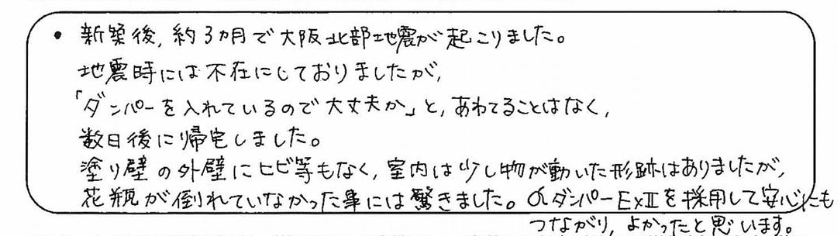 ・ 新築後, 約3カ月で大阪北部地震が起こりました。
地震時には不在にしておりましたが,
「ダンパーを入れているので大丈夫か」と, あわてることはなく,
数日後に帰宅しました。
塗り壁の外壁にヒビ等もなく, 室内は少し物が動いた形跡はありましたが,
花瓶が倒れていなかった事には驚きました。αダンパーExⅡを採用して安心にも
つながり, よかったと思います。